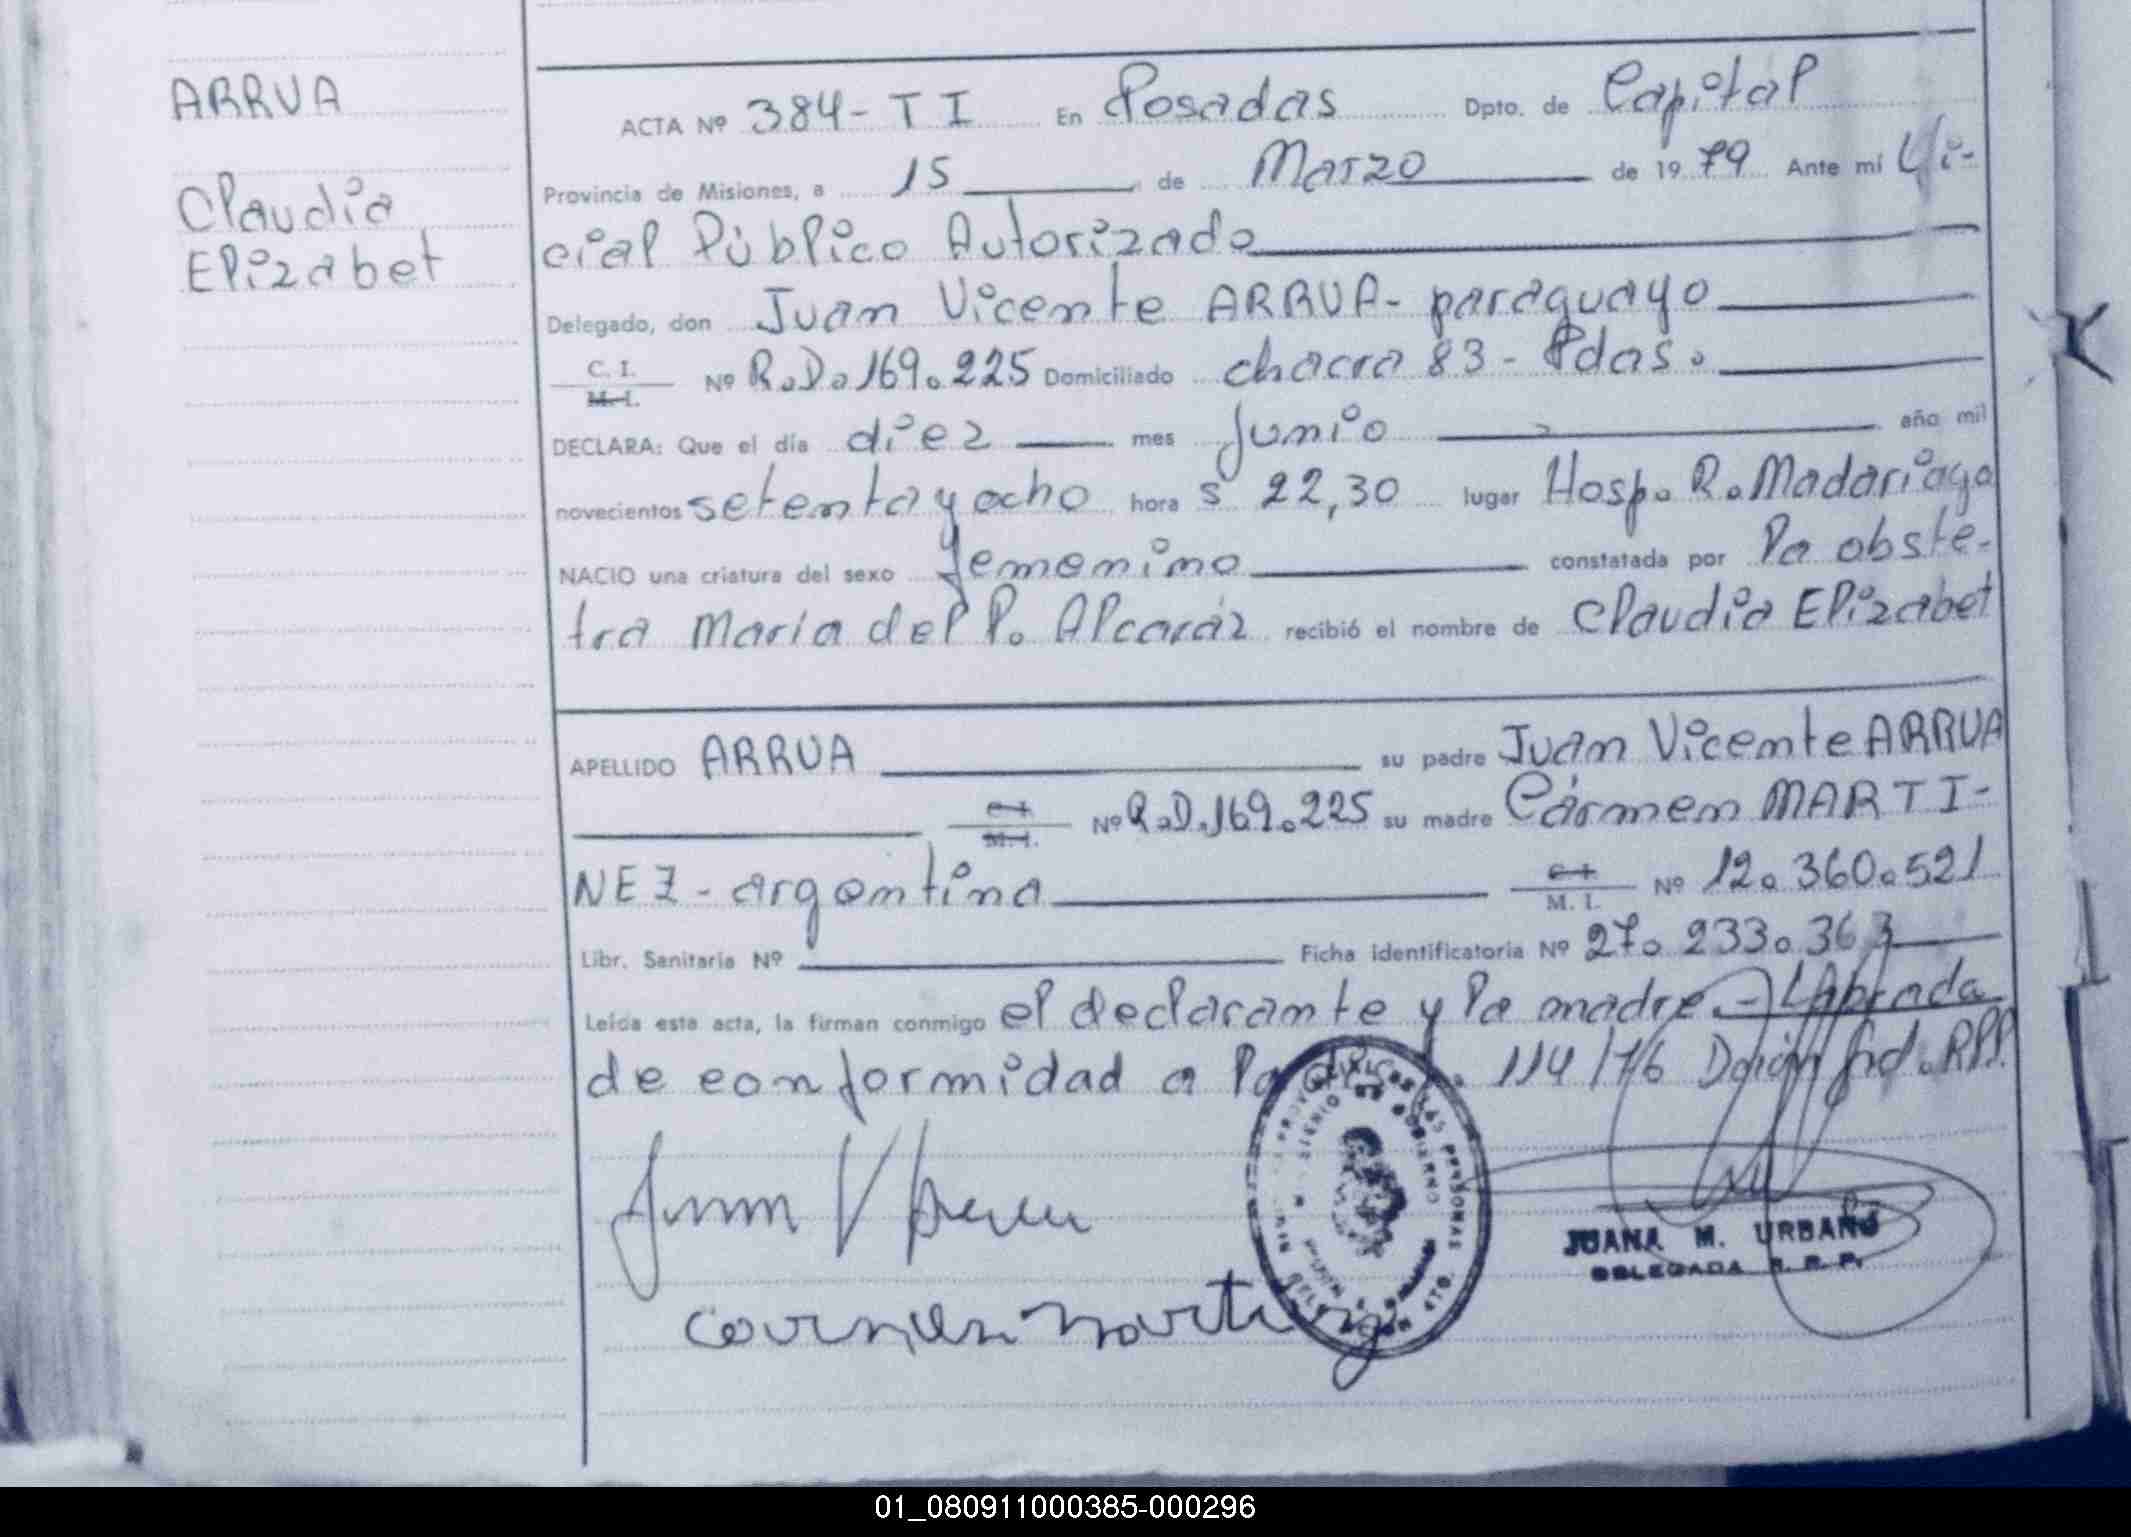 ARRUA
Claudia
Elizabet
ACTA Nº 384-TI En Posadas Dpto. de Capital
Provincia de Misiones, a 15 de Marzo de 1979 Ante mí
cial Público Autorizado
Delegado, don Juan Vicente ARRUA- paraguayo
C. I.
M. I.
Nº R.D.169.225 Domiciliado chacra 83- Pdas.
DECLARA: Que el día diez mes junio año mil
novecientos setenta y ocho hora s 22,30 lugar Hosp. R. Madariaga
NACIO una criatura del sexo femenino constatada por la obste-
tra María del P. Alcaráz recibió el nombre de Claudia Elizabet
APELLIDO ARRUA su padre Juan Vicente ARRUA
C. I.
M. I.
Nº R.D.169.225 su madre Cármen MARTI-
NEZ- argentina
C. I.
M. I.
Nº 12.360.521
Libr. Sanitaria Nº Ficha identificatoria Nº 27.233.363
Leída esta acta, la firman conmigo el declarante y la madre.- Labrada
de conformidad a la 114/76 RPP.
Juan V
Carmen Martinez
JUANA M. URBANO
DELEGADA R. P. P.
01_080911000385-000296